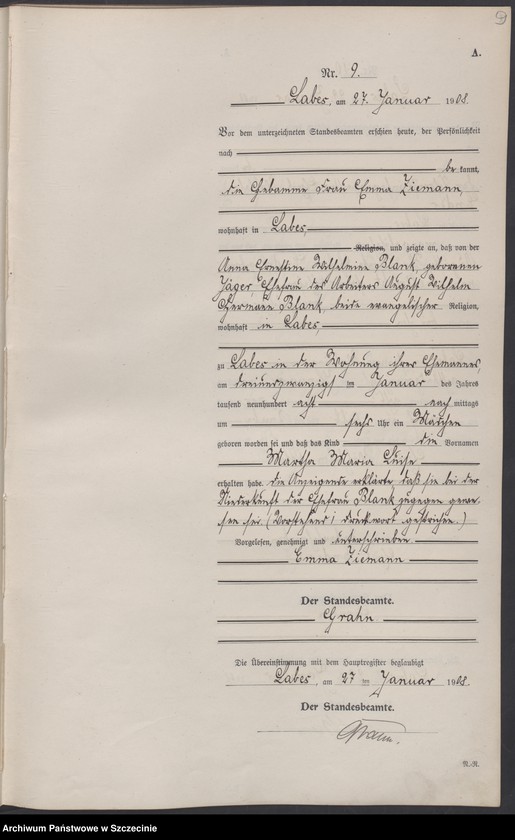 9
A.
Nr. 9.
Labes, am 27. Januar 1908.
Vor dem unterzeichneten Standesbeamten erschien heute, der Persönlichkeit
nach
be kannt,
die Hebamme Frau Emma Ziemann,
wohnhaft in Labes,
Religion, und zeigte an, daß von der
Anna Ernestine Wilhelmine Blank, geborenen
Jäger, Ehefrau des Arbeiters August Wilhelm
Hermann Blank, beide evangelischer Religion,
wohnhaft in Labes,
zu Labes in der Wohnung ihres Ehemannes,
am dreiundzwanzigsten Januar des Jahres
tausend neunhundert acht nach mittags
um sechs Uhr ein Mädchen
geboren worden sei und daß das Kind die Vornamen
Martha Maria Luise
erhalten habe. Die Anzeigende erklärte, daß sie bei der
Niederkunft der Ehefrau Blank zugegen gewe-
sen sei. (Vorstehend 1 Druckwort gestrichen.)
Vorgelesen, genehmigt und unterschrieben
Emma Ziemann
Der Standesbeamte.
Grahn
Die Übereinstimmung mit dem Hauptregister beglaubigt
Labes, am 27 ten Januar 1908.
Der Standesbeamte.
Grahn.
N.-R.
Archiwum Państwowe w Szczecinie